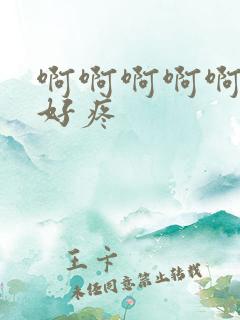 啊啊啊啊啊
好疼
王卡
未经同意禁止转载